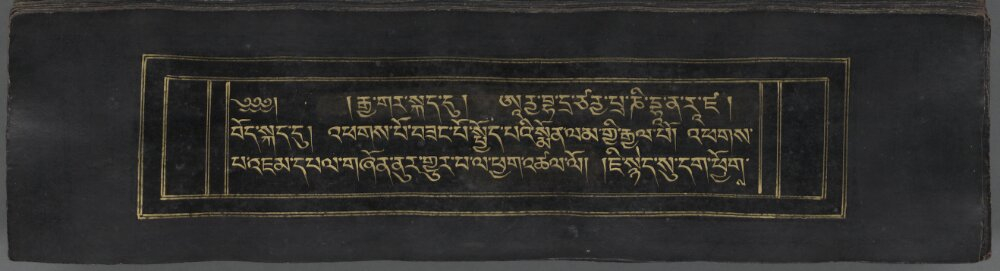 ༄༅༅། །རྒྱ་གར་སྐད་དུ། ཨཱརྻ་བྷ་དྲ་ཙརྻ་པྲ་ཎི་དྷཱན་རཱ་ཛ།
བོད་སྐད་དུ། འཕགས་པོ་བཟང་པོ་སྤྱོད་པའི་སྨོན་ལམ་གྱི་རྒྱལ་པོ། འཕགས་
པ་འཇམ་དཔལ་གཞོན་ནུར་གྱུར་པ་ལ་ཕྱག་འཚལ་ལོ། །ཇི་སྙེད་སུ་དག་ཕྱོགས་